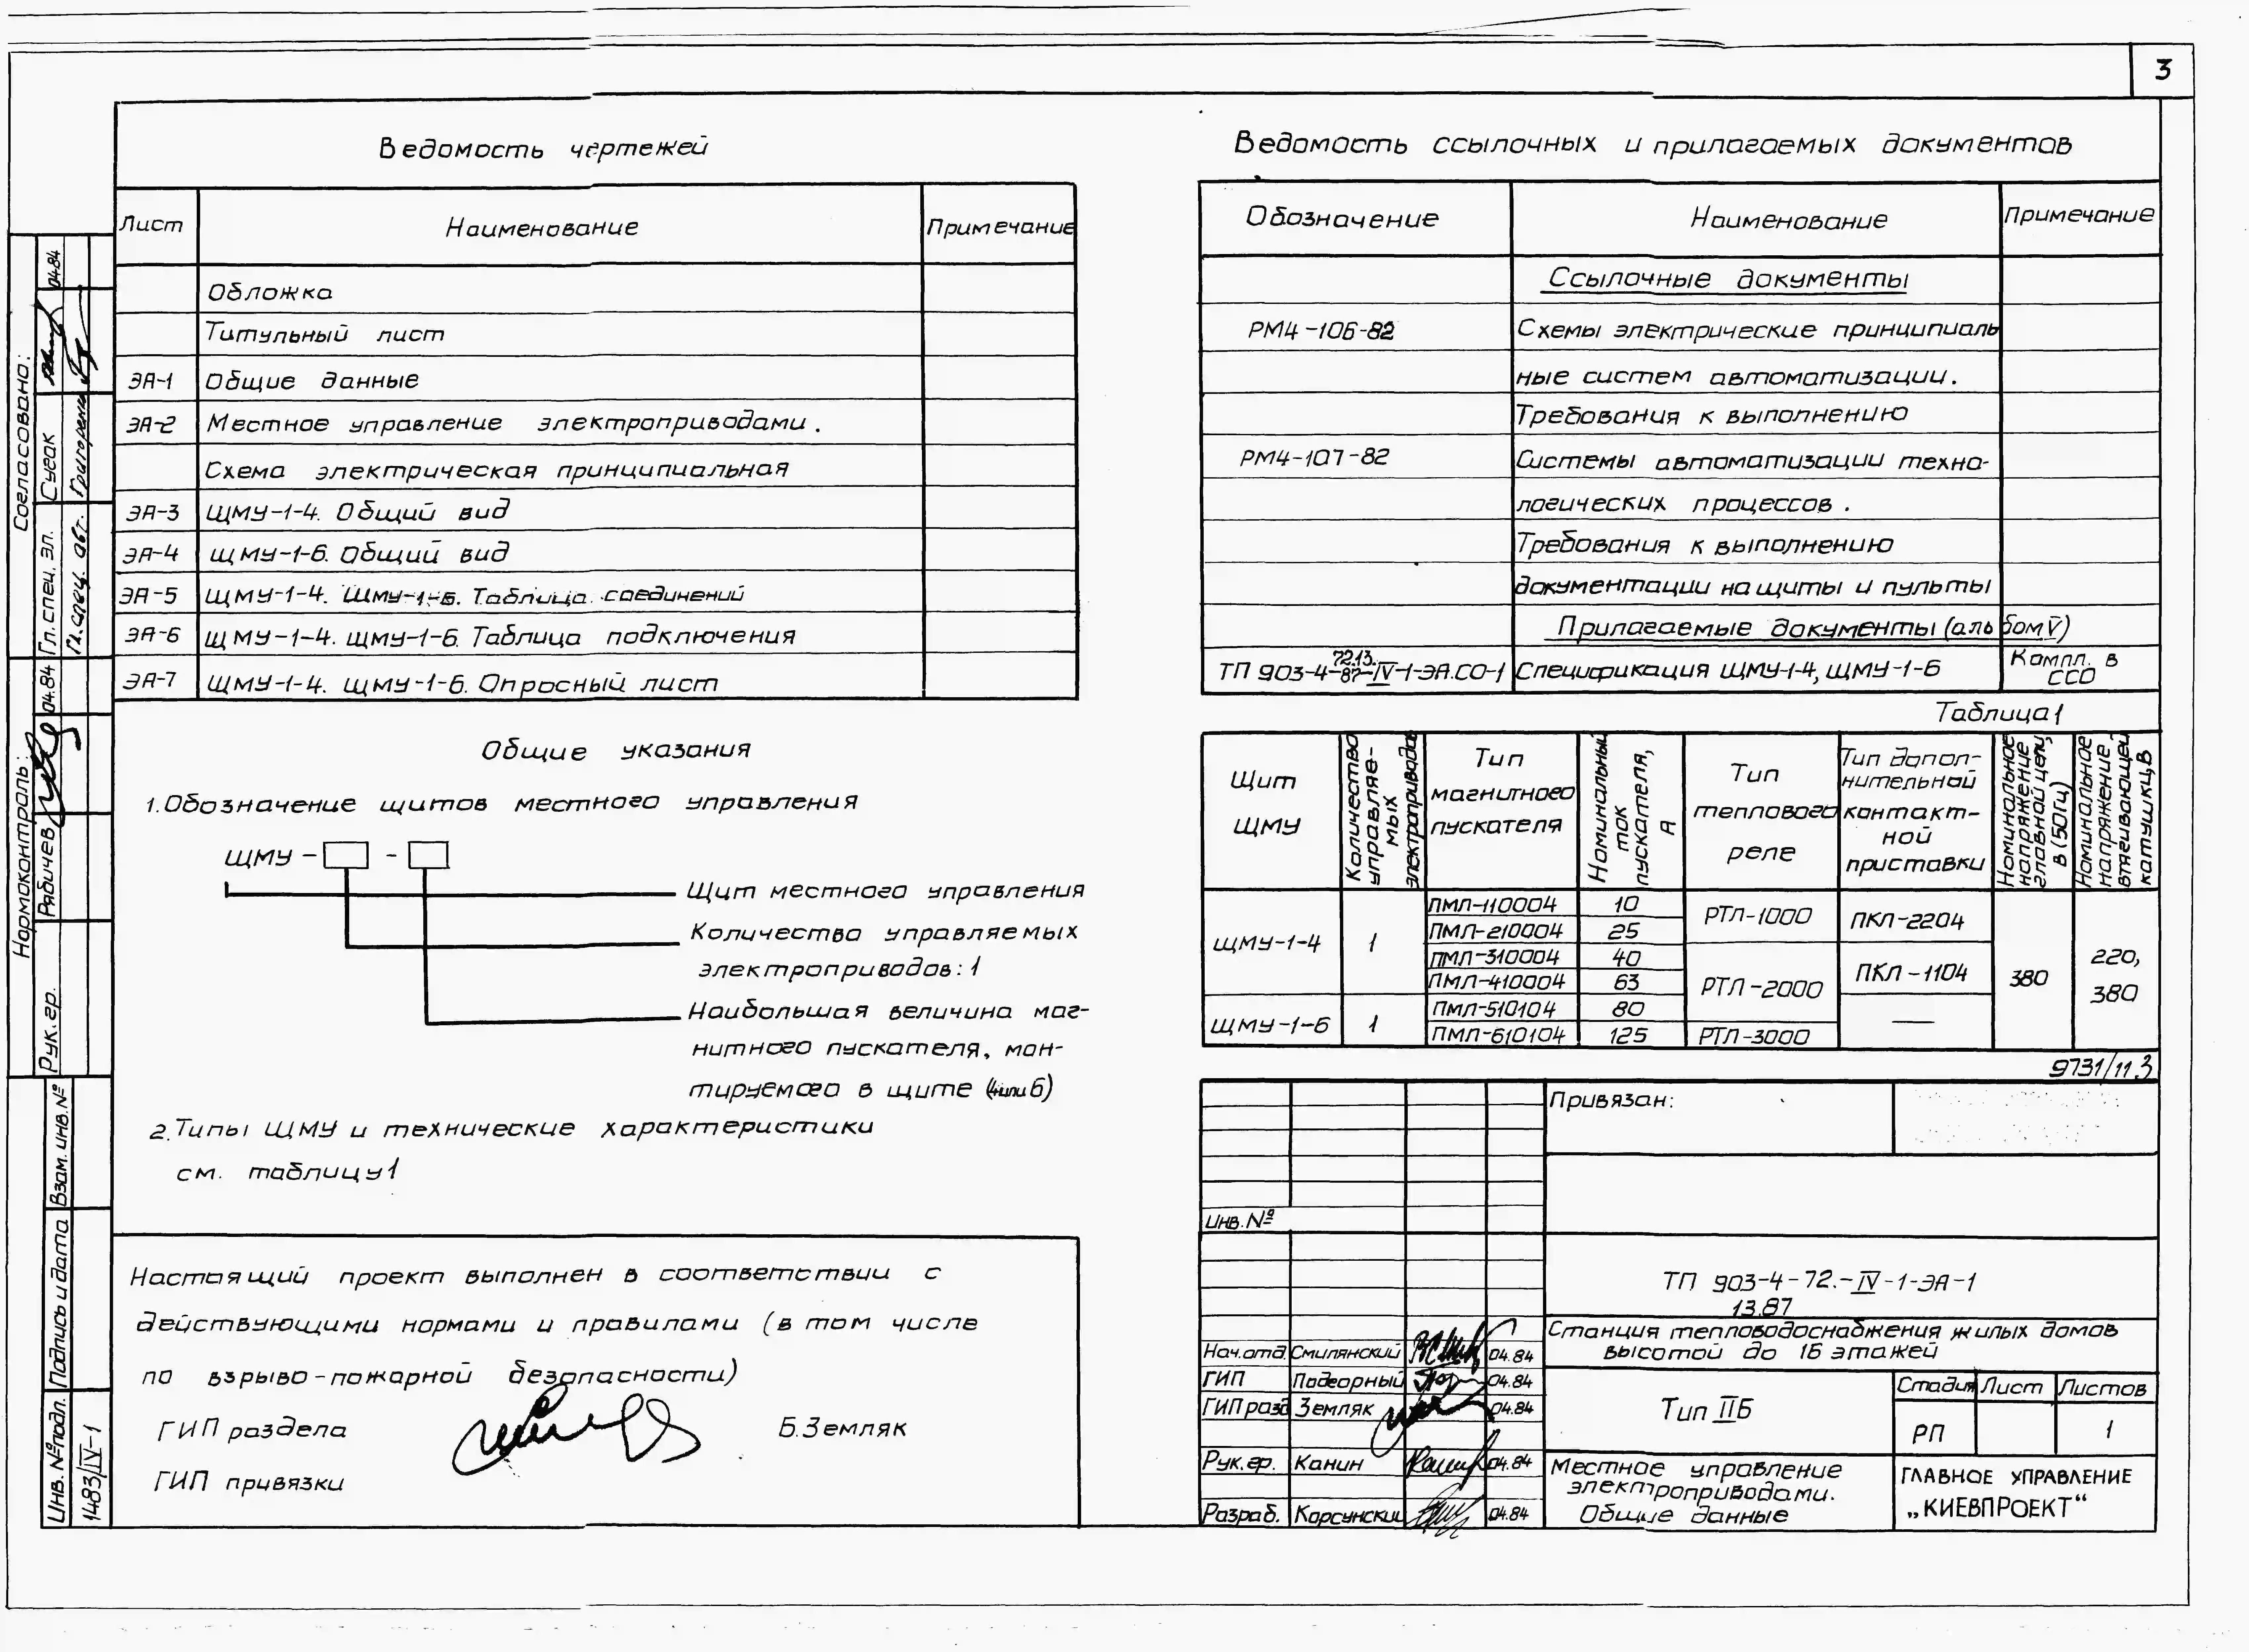 3
Ведомость чертежей
Лист Наименование Примечание
Обложка
Титульный лист
ЭА-1 Общие данные
ЭА-2 Местное управление электроприводами.
Схема электрическая принципиальная
ЭА-3 ЩМУ-1-4. Общий вид
ЭА-4 ЩМУ-1-6. Общий вид
ЭА-5 ЩМУ-1-4. ЩМУ-1-6. Таблица соединений
ЭА-6 ЩМУ-1-4. ЩМУ-1-6. Таблица подключения
ЭА-7 ЩМУ-1-4. ЩМУ-1-6. Опросный лист
Общие указания
1. Обозначение щитов местного управления
ЩМУ - -
Щит местного управления
Количество управляемых
электроприводов: 1
Наибольшая величина маг-
нитного пускателя, мон-
тируемого в щите (4 или 6)
2. Типы ЩМУ и технические характеристики
см. таблицу 1
Настоящий проект выполнен в соответствии с
действующими нормами и правилами (в том числе
по взрыво-пожарной безопасности)
ГИП раздела Б. Земляк
ГИП привязки
Ведомость ссылочных и прилагаемых документов
Обозначение Наименование Примечание
Ссылочные документы
РМ4-106-82 Схемы электрические принципиаль
ные систем автоматизации.
Требования к выполнению
РМ4-107-82 Системы автоматизации техно-
логических процессов.
Требования к выполнению
документации на щиты и пульты
Прилагаемые документы (альбом V)
72.13.
ТП 903-4-87-IV-1-ЭА.СО-1 Спецификация ЩМУ-1-4, ЩМУ-1-6 Компл. в
ССО
Таблица 1
Щит
ЩМУ
Количество
управляе-
мых
электроприводов
Тип
магнитного
пускателя
Номинальный
ток
пускателя,
А
Тип
теплового
реле
Тип допол-
нительной
контакт-
ной
приставки
Номинальное
напряжение
главной цепи,
в (50Гц)
Номинальное
напряжение
втягивающей
катушки, В
ЩМУ-1-4 1 ПМЛ-110004 10 РТЛ-1000 ПКЛ-2204 380 220,
380
ПМЛ-210004 25
ПМЛ-310004 40 РТЛ-2000 ПКЛ-1104
ПМЛ-410004 63
ЩМУ-1-6 1 ПМЛ-510104 80 —
ПМЛ-610104 125 РТЛ-3000
9731/11 3
Привязан:
Инв. №
ТП 903-4-72.-IV-1-ЭА-1
13.87
Станция тепловодоснабжения жилых домов
высотой до 16 этажей
Нач. отд. Смилянский 04.84
ГИП Подгорный 04.84
ГИП разд Земляк 04.84
Рук. гр. Канин 04.84
Разраб. Корсунский 04.84
Тип IIБ
Стадия Лист Листов
РП 1
Местное управление
электроприводами.
Общие данные
ГЛАВНОЕ УПРАВЛЕНИЕ
„КИЕВПРОЕКТ“
Согласовано:
Гл. спец. эл. Сугак 04.84
Гл. спец. Григоренко
Нормоконтроль:
Рук. гр. Рябичев 04.84
Взам. инв. №
Подпись и дата
Инв. № подл.
1483/IV-1